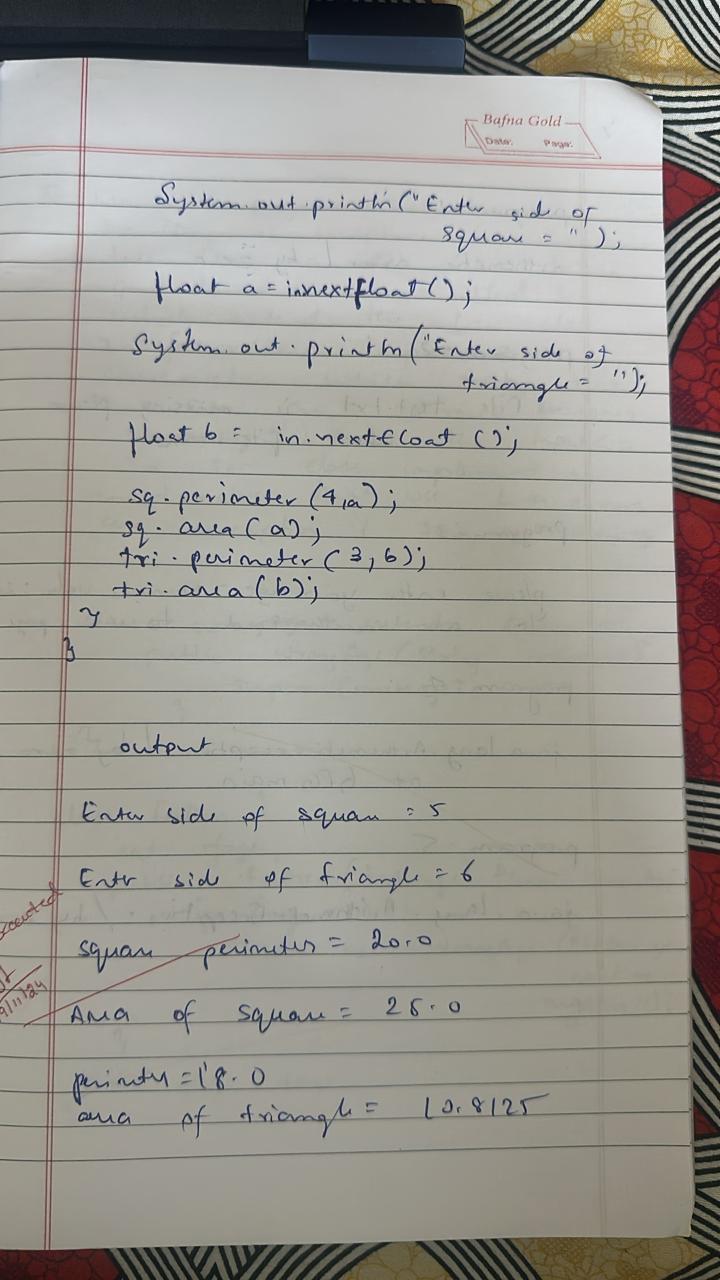 Bafna Gold
Date: Page:
System.out.println("Enter side of
square = ");
float a = in.nextfloat();
System.out.println("Enter side of
triangle = ");
float b = in.nextfloat();
sq.perimeter(4,a);
sq.area(a);
tri.perimeter(3,b);
tri.area(b);
}
}
output
Enter side of square = 5
Enter side of triangle = 6
square perimeter = 20.0
Area of square = 25.0
perimeter = 18.0
area of triangle = 10.8125